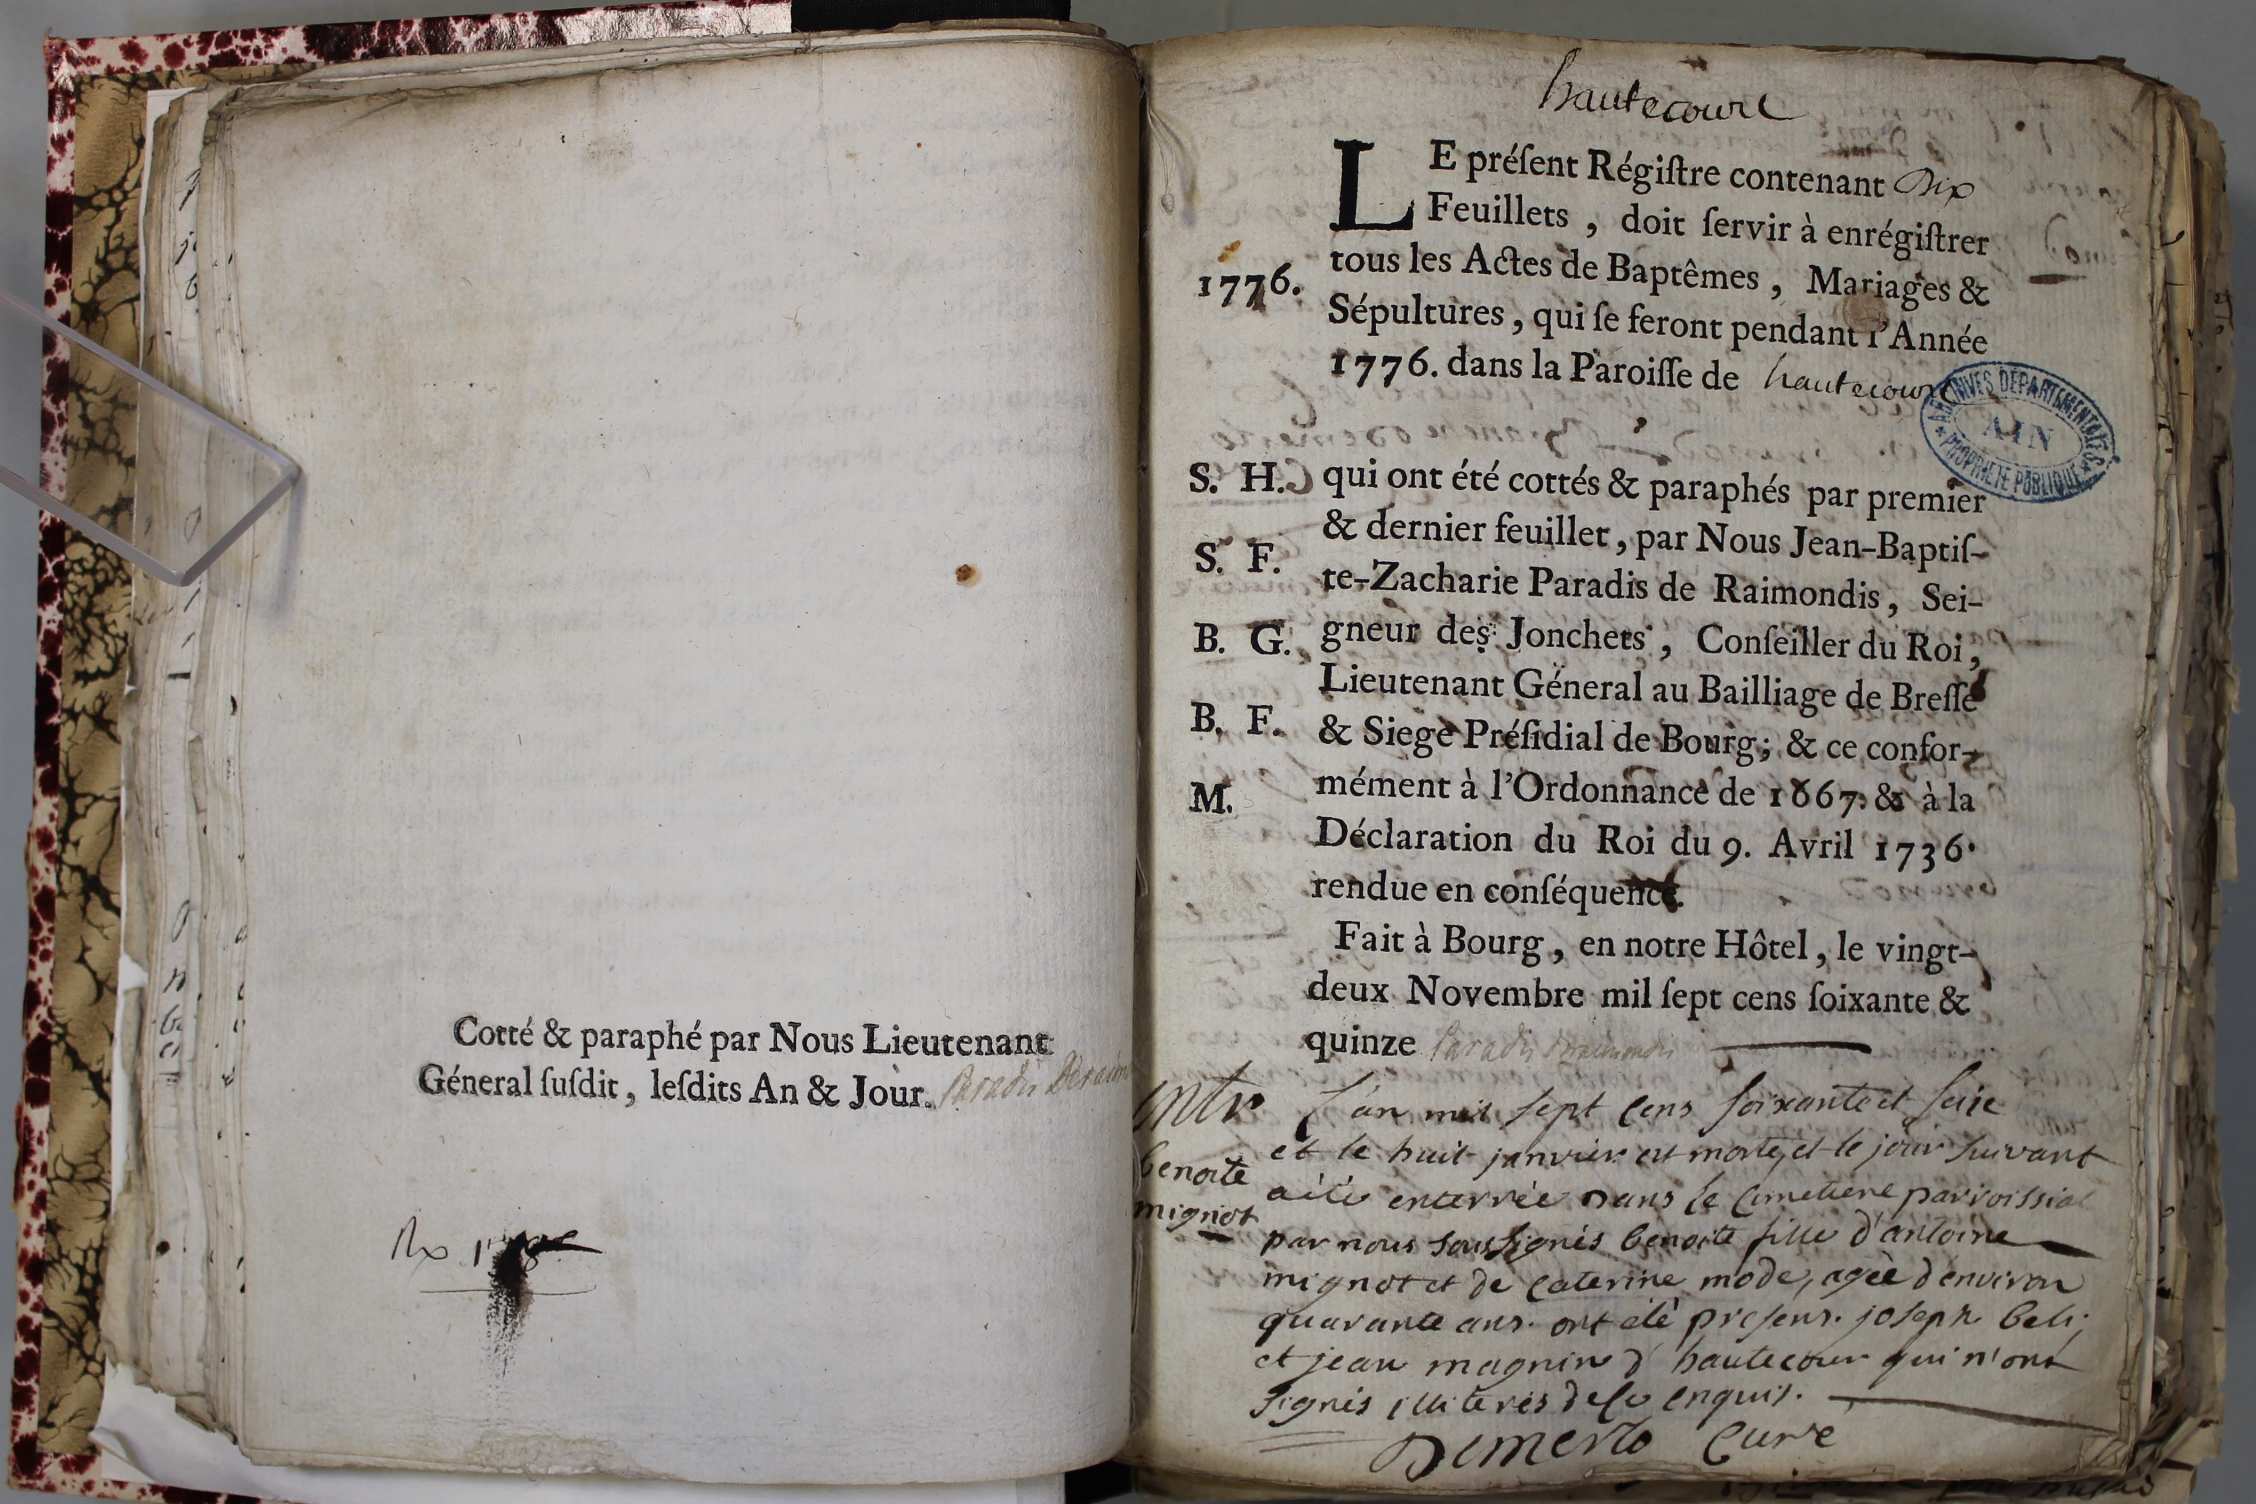 Cotté & paraphé par Nous Lieutenant
Géneral ſuſdit, leſdits An & Jour. Paradis Deraim
hautecourt
LE préſent Régiſtre contenant Dix
Feuillets, doit ſervir à enrégiſtrer
tous les Actes de Baptêmes, Mariages &
1776.
Sépultures, qui ſe feront pendant l'Année
1776. dans la Paroiſſe de hautecourt
ARCHIVES DÉPARTEMENTALES
AIN
PROPRIÉTÉ PUBLIQUE
S. H. qui ont été cottés & paraphés par premier
& dernier feuillet, par Nous Jean-Baptiſ-
S. F. te-Zacharie Paradis de Raimondis, Sei-
B. G. gneur des Jonchets, Conſeiller du Roi,
Lieutenant Géneral au Bailliage de Breſſe
B. F. & Siege Préſidial de Bourg; & ce confor-
M. mément à l'Ordonnance de 1667. & à la
Déclaration du Roi du 9. Avril 1736.
rendue en conſéquence.
Fait à Bourg, en notre Hôtel, le vingt-
deux Novembre mil ſept cens ſoixante &
quinze Paradis Deraimondis
L'an mil sept cens soixante et seize
et le huit janvier est morte, et le jour suivant
benoite
a été enterrée dans le cimetiere parroissial
mignot
par nous soussignés benoite fille d'antoine
mignot et de caterine mode, agée d'environ
quarante ans. ont été presens. joseph beli,
et jean magnin d'hautecour qui n'ont
signés illiterés de ce enquis.
Curé